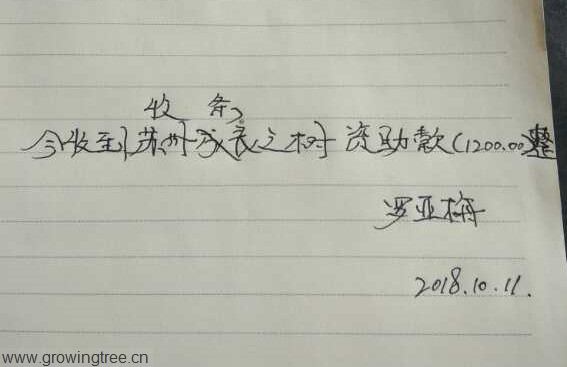 收条
今收到苏州成长之树资助款(1200.00整
罗亚梅
2018.10.11.
www.growingtree.cn